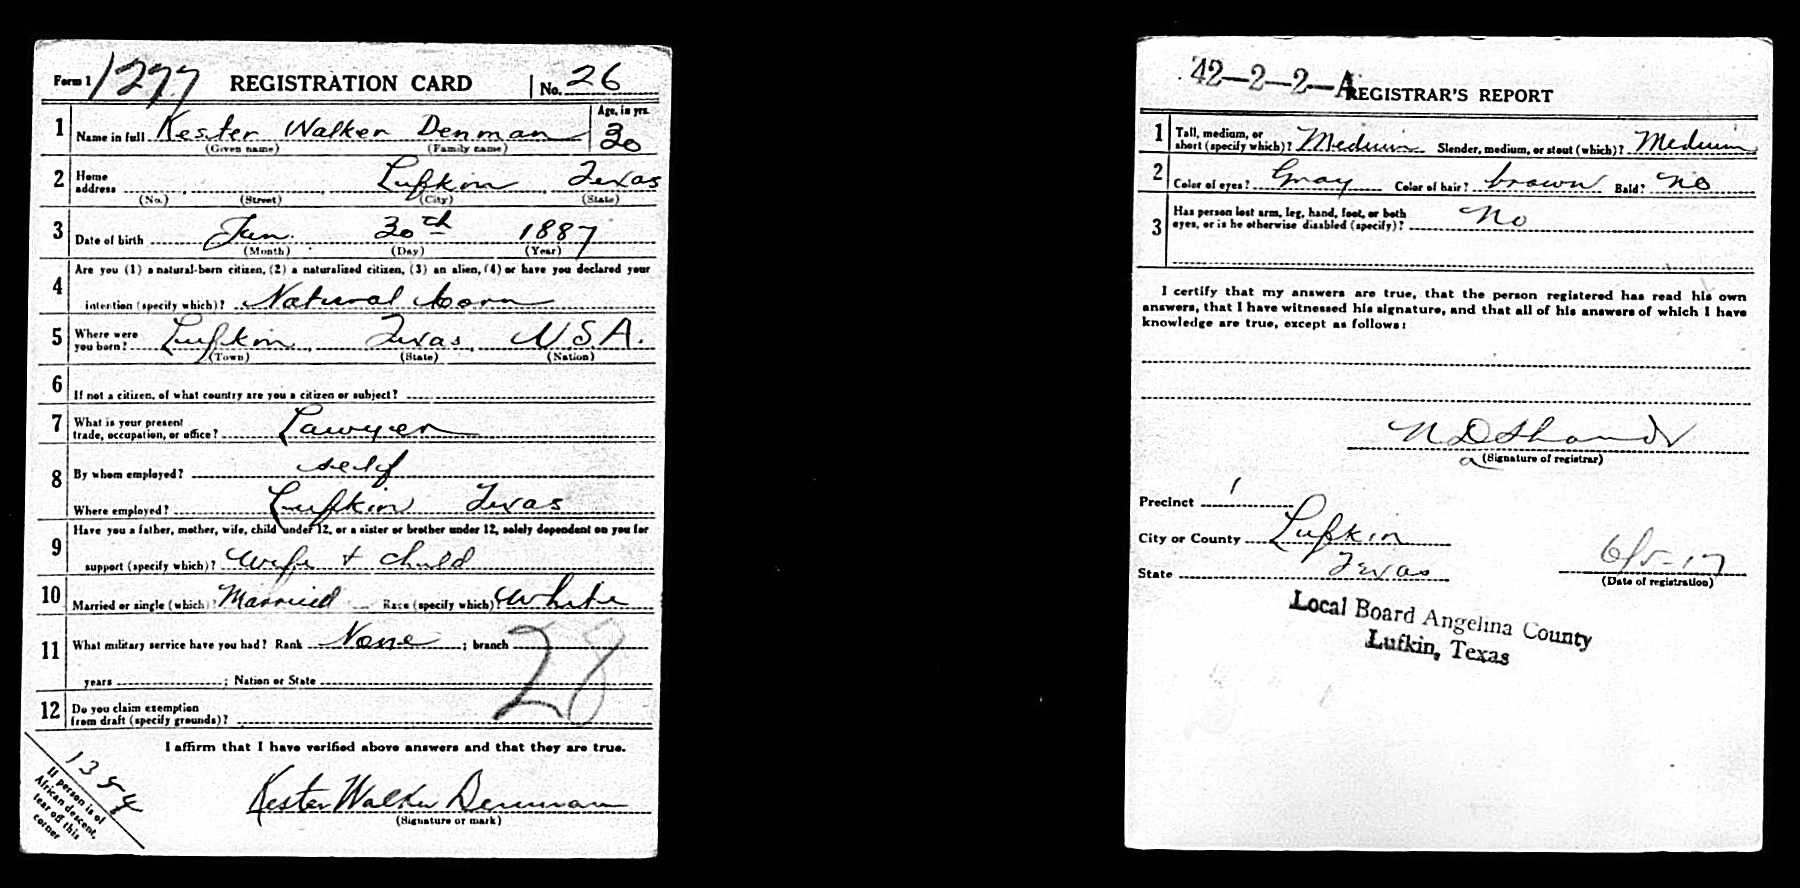 Form 1 1277 REGISTRATION CARD No. 26
1 Name in full Kester Walker Denman Age, in yrs. 30
(Given name) (Family name)
2 Home address Lufkin Texas
(No.) (Street) (City) (State)
3 Date of birth Jan. 30th 1887
(Month) (Day) (Year)
4 Are you (1) a natural-born citizen, (2) a naturalized citizen, (3) an alien, (4) or have you declared your
intention (specify which)? Natural born
5 Where were you born? Lufkin Texas U.S.A.
(Town) (State) (Nation)
6 If not a citizen, of what country are you a citizen or subject?
7 What is your present trade, occupation, or office? Lawyer
8 By whom employed? self
Where employed? Lufkin Texas
9 Have you a father, mother, wife, child under 12, or a sister or brother under 12, solely dependent on you for
support (specify which)? Wife + child
10 Married or single (which)? Married Race (specify which)? White
11 What military service have you had? Rank None ; branch
28
years ; Nation or State
12 Do you claim exemption
from draft (specify grounds)?
I affirm that I have verified above answers and that they are true.
Kester Walker Denman
(Signature or mark)
1354
If person is of
African descent,
tear off this
corner
42-2-2-A
REGISTRAR'S REPORT
1 Tall, medium, or short (specify which)? Medium Slender, medium, or stout (which)? Medium
2 Color of eyes? Gray Color of hair? brown Bald? No
3 Has person lost arm, leg, hand, foot, or both
eyes, or is he otherwise disabled (specify)? No
I certify that my answers are true, that the person registered has read his own
answers, that I have witnessed his signature, and that all of his answers of which I have
knowledge are true, except as follows:
(Signature of registrar)
Precinct 1
City or County Lufkin
State Texas 6/5-17
(Date of registration)
Local Board Angelina County
Lufkin, Texas